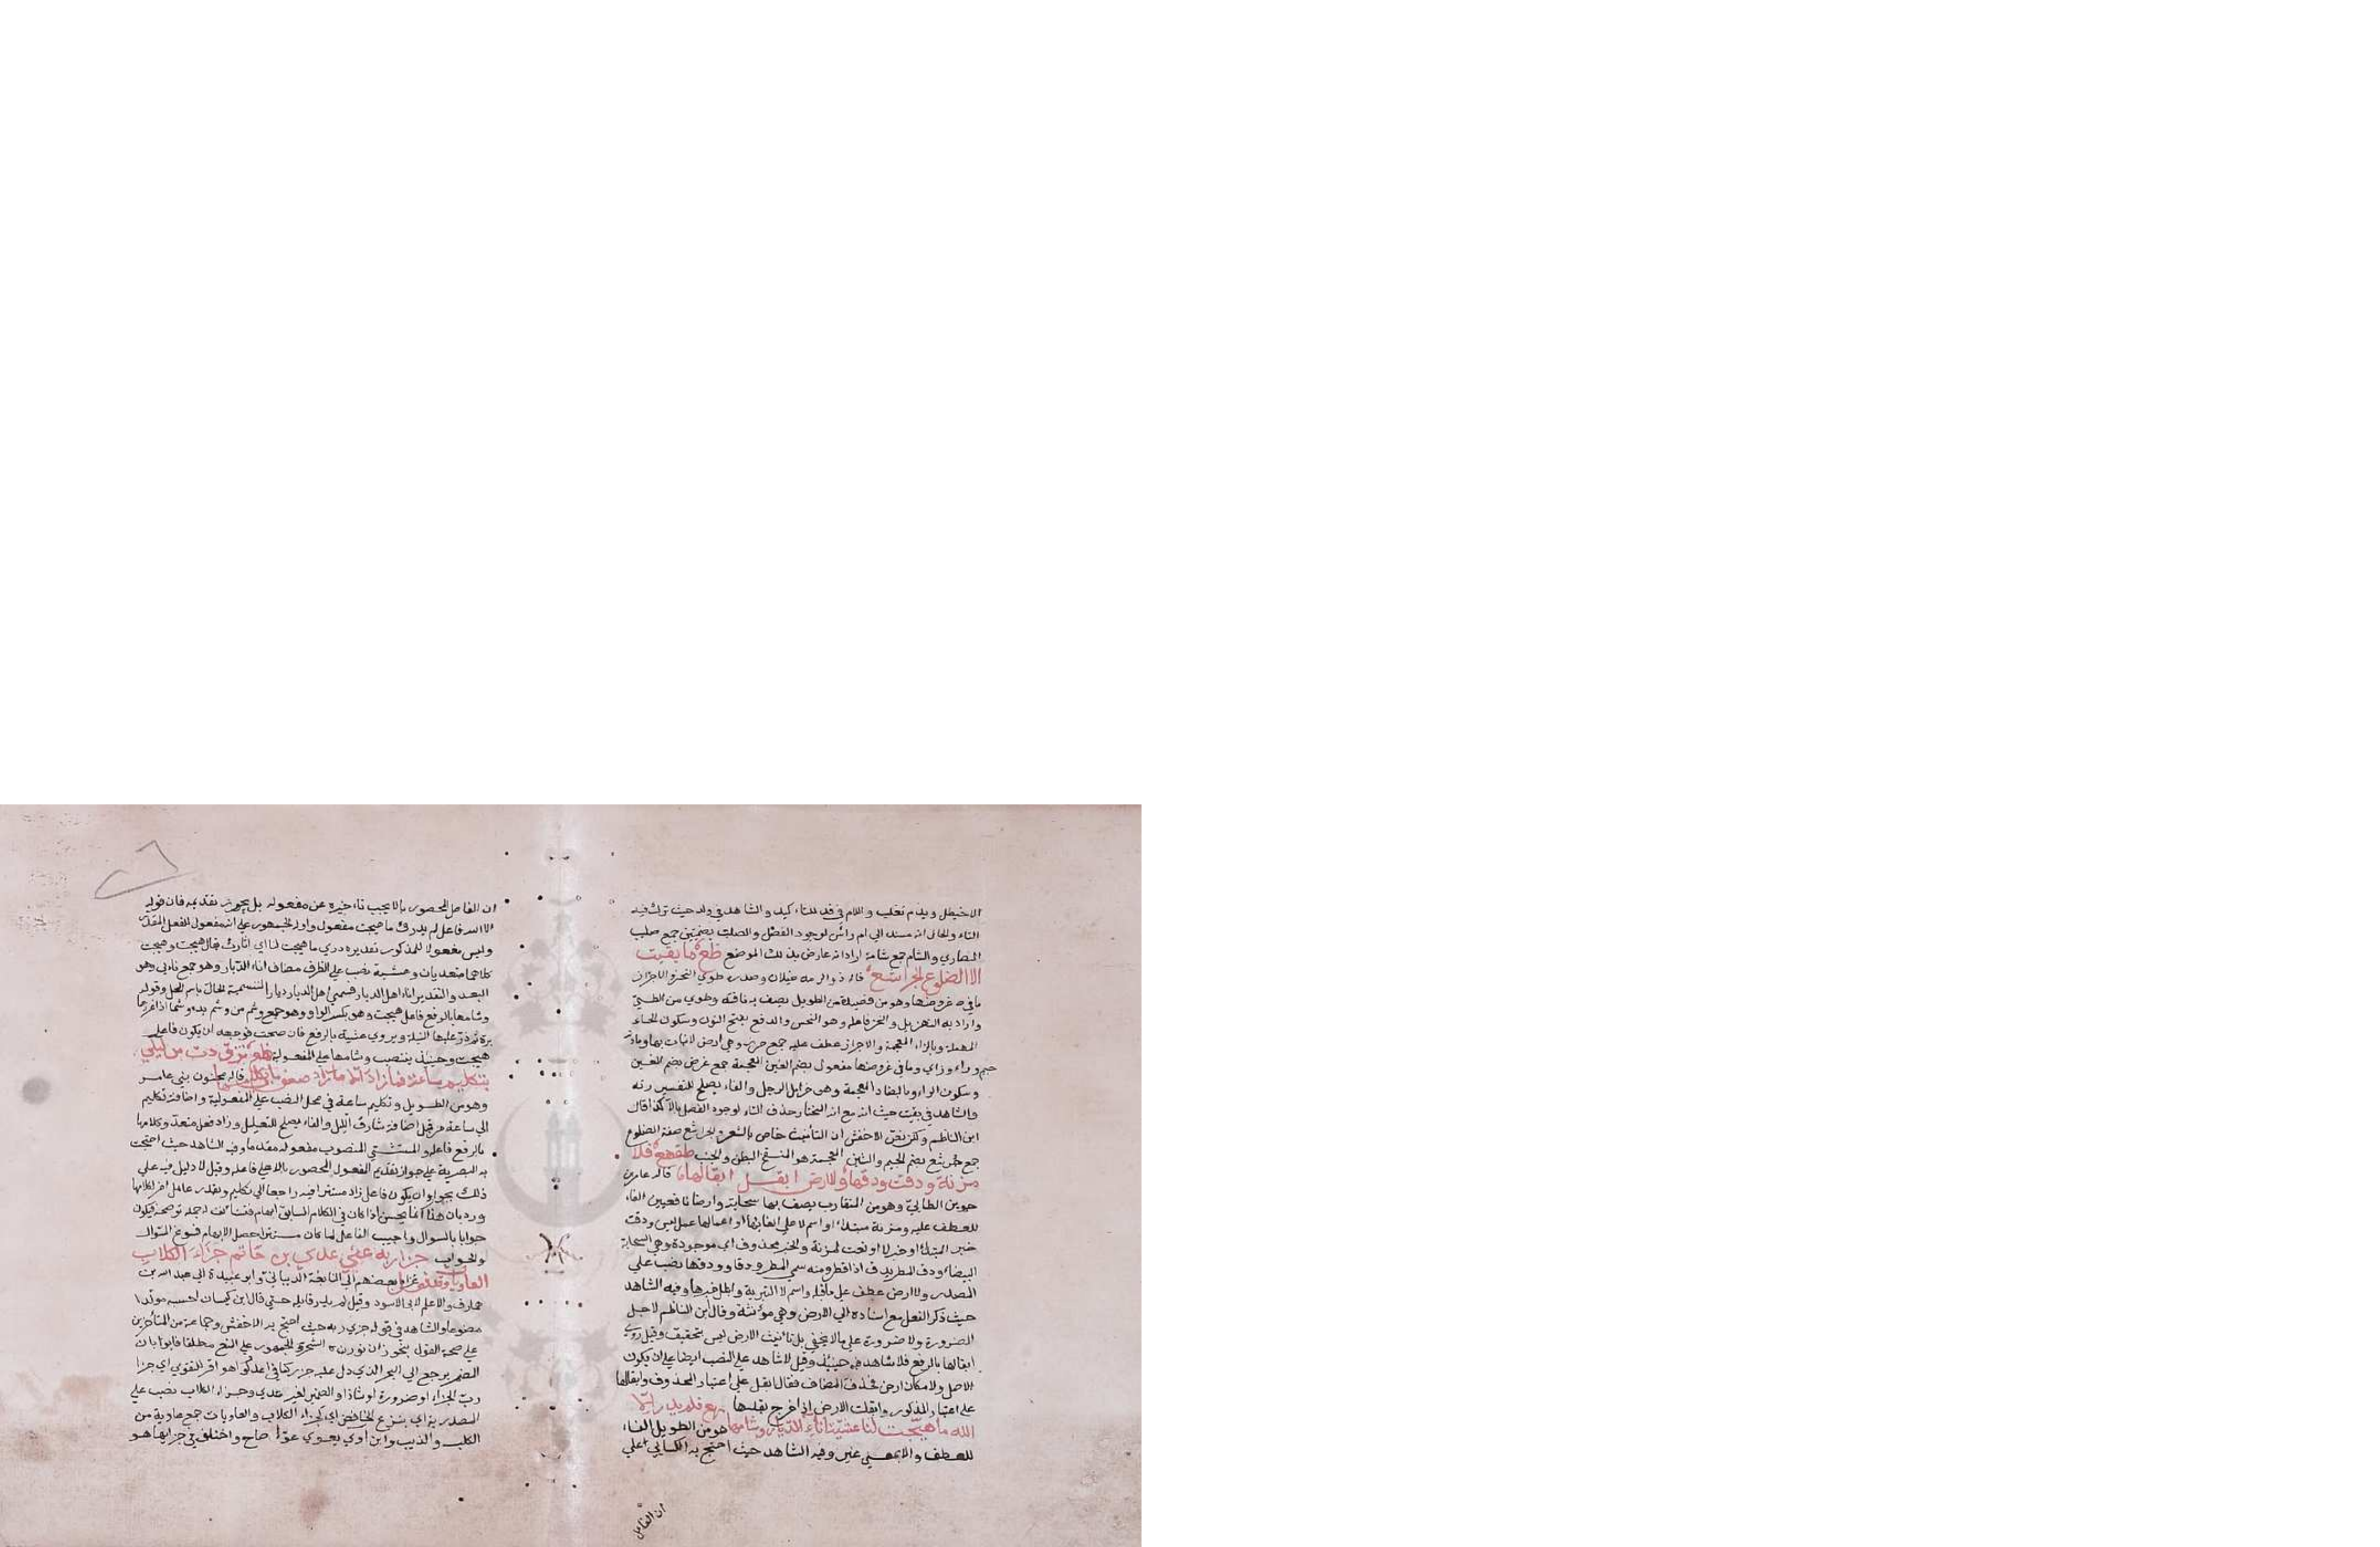 الاخيطل ويذم تغلب واللام في قد للتاكيد والشاهد في ولد حيث ترك فيه
التاء والحال انه مسند الي ام راس لوجود الفصل والصلب بضمتين جمع صليب
النصاري والشام جمع شامة اراد انه عارض بذلك الموضع ظع ه فما بقيت
الا الضلوع الجراشع قاله ذو الرمه غيلان وصدره طوي النحز والاجراز
ما في غروضها وهو من قصيدة من الطويل يصف به ناقته وطوي من الطيّ
واراد به التهزيل والنحز فاعله وهو النحس والدفع بفتح النون وسكون الحاء
المهملة وبالزاء المعجمة والاجراز عطف عليه جمع جرز وهي ارض لا نبات بها ومادته
جيم وراء وزاي وما في غروضها مفعول بضم الغين المعجمة جمع غرض بضم الغين
وسكون الراء وبالضاد المعجمة وهي حزام الرحل والفاء يصلح للتفسير
والشاهد في بقيت حيث انه مع انه المختار حذف التاء لوجود الفصل بالا كذا قال
ابن الناظم ولكن نص الاخفش ان التانيث خاص بالشعر والجراشع صفة الضلوع
جمع جرشع بضم الجيم والشين المعجمة هو المنتفخ البطن والجنب ظقهع ه فلا
مزنة ودقت ودقها ه ولا ارض ابقل ابقالها ه قاله عامر بن
جوين الطائي وهو من المتقارب يصف بها سحابة وارضا نافعين الفاء
للعطف عليه ومزنة مبتداء او اسم لا علي الغائها او اعمالها عمل ليس ودقت
خبر المبتداء او خبر لا او نعت لمزنة والخبر محذوف اي موجودة وهي السحابة
البيضاء ودق المطر يدق اذا قطر ومنه سمي المطر ودقا وودقها نصب علي
المصدر ولا ارض عطف علي ما قبله واسم لا التبرية وابقل خبرها وفيه الشاهد
حيث ذكر الفعل مع اسناده الي الارض وهي مؤنثة وقال ابن الناظم لاجل
الضرورة ولا ضرورة علي ما لا يخفي بل تانيث الارض ليس بحقيقي وقيل روي
ابقالها بالرفع فلا شاهد فيه حينئذ وقيل لا شاهد علي النصب ايضا علي ان يكون
الاصل ولا مكان ارض فحذف المضاف فقال ابقل علي اعتبار المحذوف وابقالها
علي اعتبار المذكور وابقلت الارض اذا خرج بقلها ه فلم يدر الا
الله ما هيّجت لنا عشيّة اناء الديار وشامها هو من الطويل الفاء
للعطف والا بمعني غير وفيه الشاهد حيث احتج به الكسائي علي
ان الفاعل
ان الفاعل المحصور بالا يجب تاخيره عن مفعوله بل يجوز تقديمه فان قوله
الا الله فاعل لم يدر وقوله ما هيجت مفعول واول الجمهور علي انه مفعول لفعل المقدر
وليس مفعولا للمذكور تقديره دري ما هيجت لنا اي اثارت يقال هيجت وهيجت
كلاهما متعديان وعشية نصب علي الظرف مضاف اناء الديار وهو جمع نائي وهو
البعد والتقدير اناء اهل الديار فسمي اهل الديار ديارا لتسمية الحال باسم المحل وقوله
وشامها بالرفع فاعل هيجت وهو بكسر الواو وهو جمع وشم من وشم يده وشما اذا غرزها
بابرة ثم ذر عليها النيلة ويروي عشية بالرفع فان صحت فوجهه ان يكون فاعل
هيجت وحينئذ ينتصب وشامها علي المفعولية ظع ه تزودت من ليلي
بتكليم ساعة فما زاد الا ضعف ما بي كلامها قاله مجنون بني عامر
وهو من الطويل وتكليم ساعة في محل النصب علي المفعولية واضافة تكليم
الي ساعة من قبل اضافة سارق الليل والفاء يصلح للتعليل وزاد فعل متعد وكلامها
بالرفع فاعله والمستثني المنصوب مفعوله مقدما وفيه الشاهد حيث احتجت
به البصرية علي جواز تقديم المفعول المحصور بالا علي فاعله وقيل لا دليل فيه علي
ذلك بجواز ان يكون فاعل زاد مستترا فيه راجعا الي تكليم ويقدر عامل اخر لكلامها
ورد بان هذا انما يحسن اذا كان في الكلام السابق ابهام فتستانف له جملة توضحه فيكون
جوابا بالسوال واجيب الفاعل لما كان مستترا حصل الابهام فسوغ السوال
والجواب جزا ربه عني عدي بن حاتم جزاء الكلاب
العاويات وقد فعل عزاه بعضهم الي النابغة الذبياني وابو عبيدة الي عبد الله بن
همارق والاعلم لابي الاسود وقيل لم يدر قائله حتي قال ابن كيسان احسبه مولدا
مصنوعا والشاهد في قوله جزي ربه حيث احتج به الاخفش وجماعة من المتاخرين
علي صحة القول بنحو زان نوره الشجر والجمهور علي المنع مطلقا فاولوا بان
الضمير يرجع الي الجزاء الذي دل عليه جزي كما في اعدلوا هو اقرب للتقوي اي جزا
رب الجزاء او ضرورة او شاذ او الضمير لغير عدي وجزاء الكلاب نصب علي
المصدرية اي بنزع الخافض اي كجزاء الكلاب والعاويات جمع عاوية من
الكلب والذيب وابن آوي يعوي عواء صاح واختلف في جزايها هو